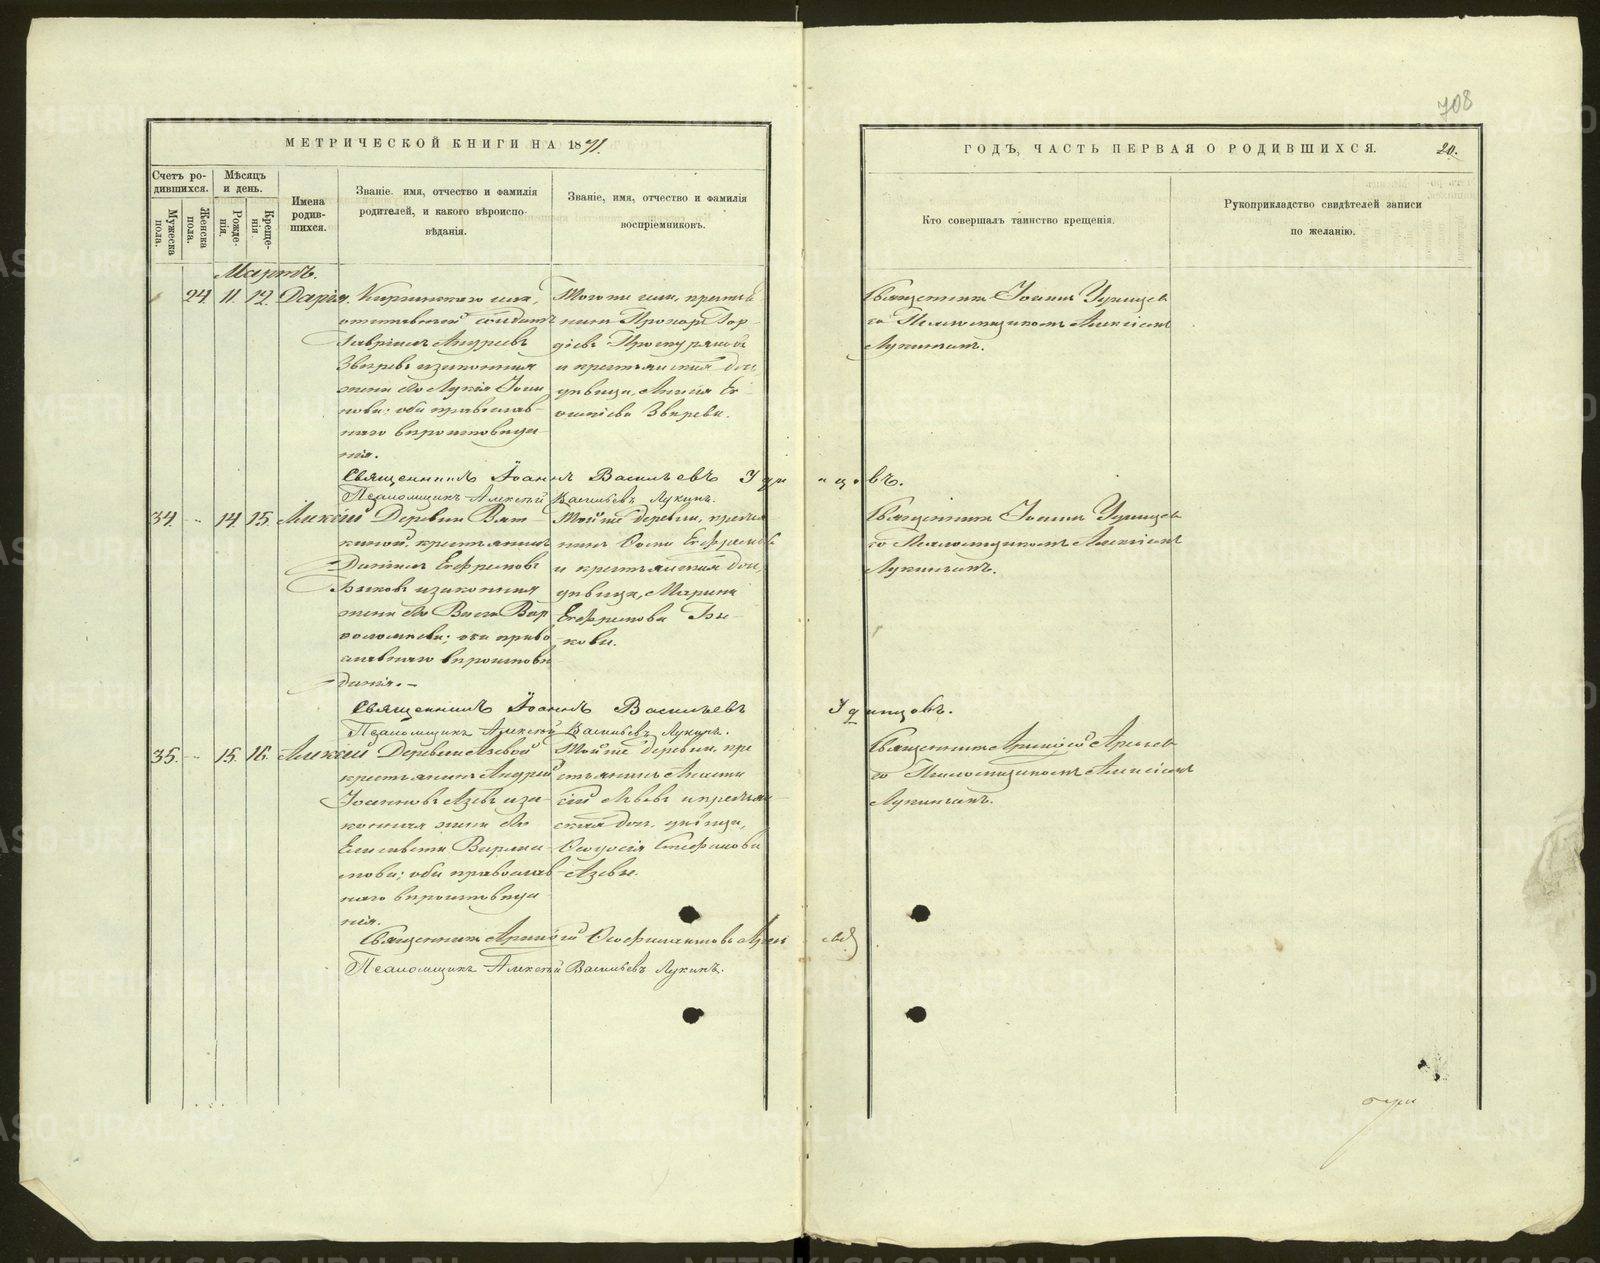 708
МЕТРИЧЕСКОЙ КНИГИ НА 1871.
ГОДЪ, ЧАСТЬ ПЕРВАЯ О РОДИВШИХСЯ.
20.
Счетъ родившихся.
Мужеска пола.
Женска пола.
Мѣсяцъ и день.
Рожденія.
Крещенія.
Имена родившихся.
Званіе, имя, отчество и фамилія
родителей, и какого вѣроиспо-
вѣданія.
Званіе, имя, отчество и фамилія
воспріемниковъ.
Кто совершалъ таинство крещенія.
Рукоприкладство свидѣтелей записи
по желанію.
Мартъ.
24. 11. 12. Дарія.
села,
отставный солдатъ
Гавріилъ Андреевъ
Звѣревъ и законная
жена его Лукія Іоан
нова; оба православ-
наго вѣроисповѣда-
нія.
Того же села, крестья
нинъ Гор-
діевъ
и крестьянская дочь
девица,
Звѣрева.
Священникъ Іоаннъ
со Псаломщикомъ Алексіемъ
Лукинымъ.
Священникъ Іоаннъ Васильевъ Удинцовъ.
Псаломщикъ Алексѣй Васильевъ Лукинъ.
34. 14. 15. Алексій
Деревни Вят-
киной крестьянинъ
Даніилъ Ефремовъ
Быковъ и законная
жена его Васса Вар
ѳоломеева; оба право
славнаго вѣроисповѣ
данія.
Той же деревни, крестья
нинъ Ѳома Ефремовъ
и крестьянская дочь,
девица, Марина
Ефремова Бы-
кова.
Священникъ Іоаннъ
со Псаломщикомъ Алексіемъ
Лукинымъ.
Священникъ Іоаннъ Васильевъ Удинцовъ.
Псаломщикъ Алексѣй Васильевъ Лукинъ.
35. 15. 16. Алексій
Деревни Азевой
крестьянинъ Андрей
Іоанновъ Азевъ и за-
конная жена его
Елисавета Варла-
мова; оба православ-
наго вѣроисповѣда-
нія.
Той же деревни, кре
стьянинъ
и крестьян-
ская дочь, девица,
Ѳеодосія Стефанова
Азевы.
Священникъ
со Псаломщикомъ Алексіемъ
Лукинымъ.
Священникъ
Псаломщикъ Алексѣй Васильевъ Лукинъ.
METRIKI.GASO-URAL.RU